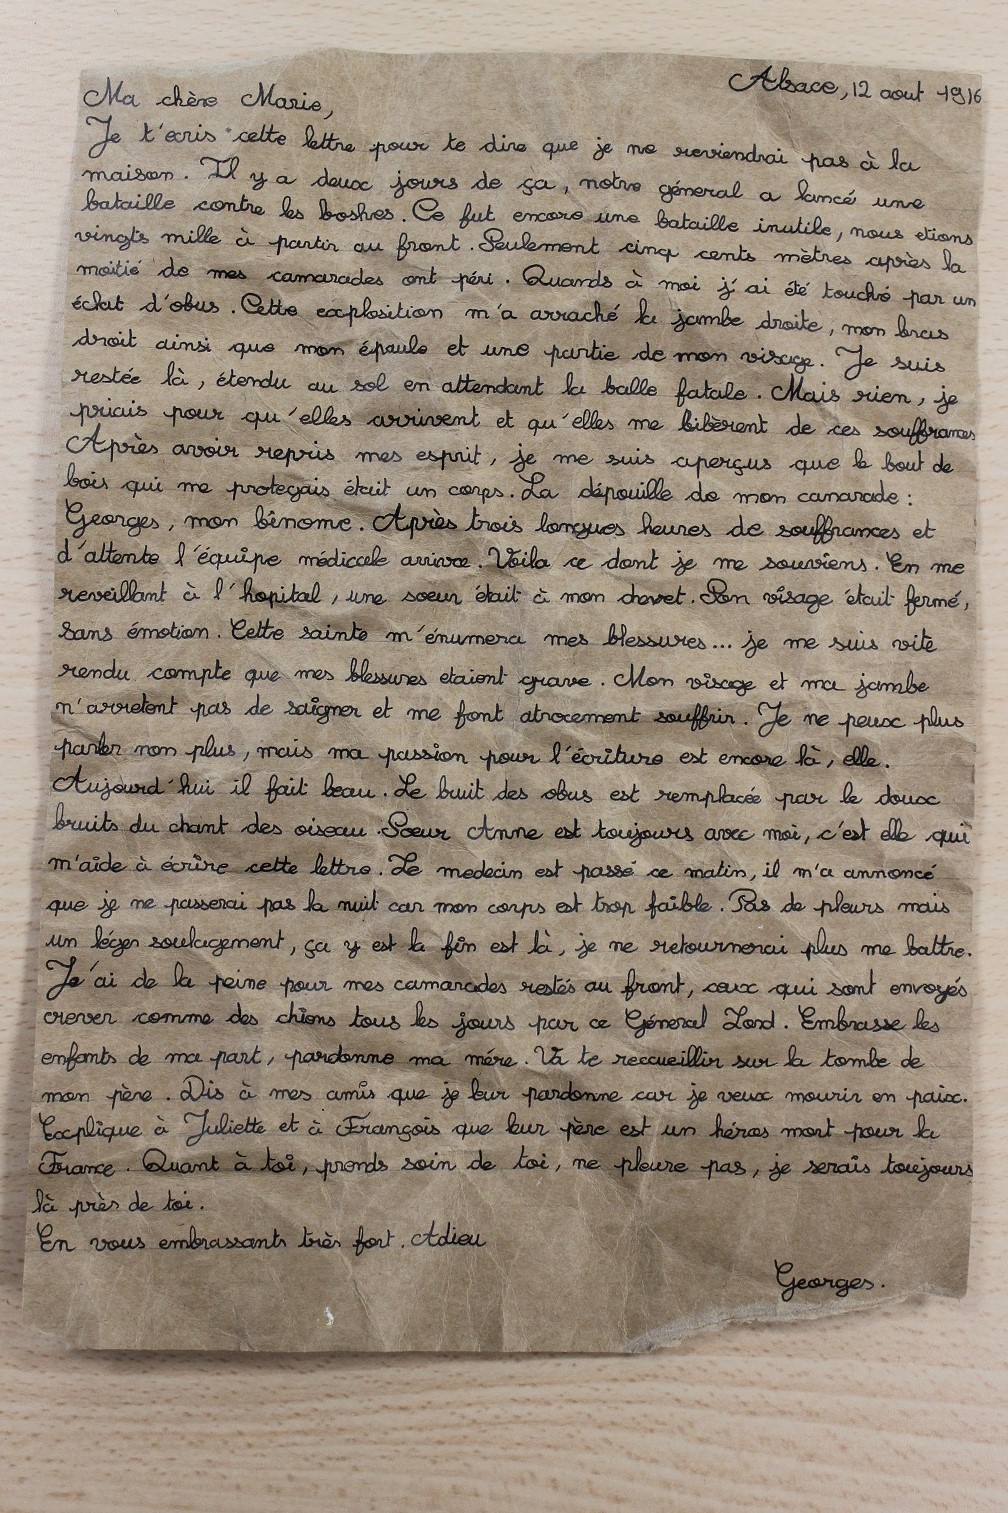 Alsace, 12 aout 1916
Ma chère Marie,
Je t'ecris cette lettre pour te dire que je ne reviendrai pas à la
maison. Il y a deux jours de ça, notre géneral a lancé une
bataille contre les boshes. Ce fut encore une bataille inutile, nous etions
vingts mille à partir au front. Seulement cinq cents mètres après la
moitié de mes camarades ont péri. Quands à moi j'ai été touché par un
éclat d'obus. Cette explosition m'a arraché la jambe droite, mon bras
droit ainsi que mon épaule et une partie de mon visage. Je suis
restée là, étendu au sol en attendant la balle fatale. Mais rien, je
priais pour qu'elles arrivent et qu'elles me libèrent de ces souffrances
Après avoir repris mes esprit, je me suis aperçus que le bout de
bois qui me proteçais était un corps. La dépouille de mon camarade :
Georges, mon binome. Après trois longues heures de souffrances et
d'attente l'équipe médicale arriva. Voila ce dont je me souviens. En me
reveillant à l'hopital, une soeur était à mon chevet. Son visage était fermé,
sans émotion. Cette sainte m'énumera mes blessures... je me suis vite
rendu compte que mes blessures etaient grave. Mon visage et ma jambe
n'arretent pas de saigner et me font atrocement souffrir. Je ne peux plus
parler non plus, mais ma passion pour l'écriture est encore là, elle.
Aujourd'hui il fait beau. Le bruit des obus est remplacée par le doux
bruits du chant des oiseau. Soeur Anne est toujours avec moi, c'est elle qui
m'aide à écrire cette lettre. Le medecin est passé ce matin, il m'a annoncé
que je ne passerai pas la nuit car mon corps est trop faible. Pas de pleurs mais
un léger soulagement, ça y est la fin est là, je ne retournerai plus me battre.
Je'ai de la peine pour mes camarades restés au front, ceux qui sont envoyés
crever comme des chiens tous les jours par ce Géneral Lord. Embrasse les
enfants de ma part, pardonne ma mére. Va te reccueillir sur la tombe de
mon père. Dis à mes amis que je leur pardonne car je veux mourir en paix.
Explique à Juliette et à François que leur père est un héros mort pour la
France. Quant à toi, prends soin de toi, ne pleure pas, je serais toujours
là près de toi.
En vous embrassants très fort. Adieu
Georges.